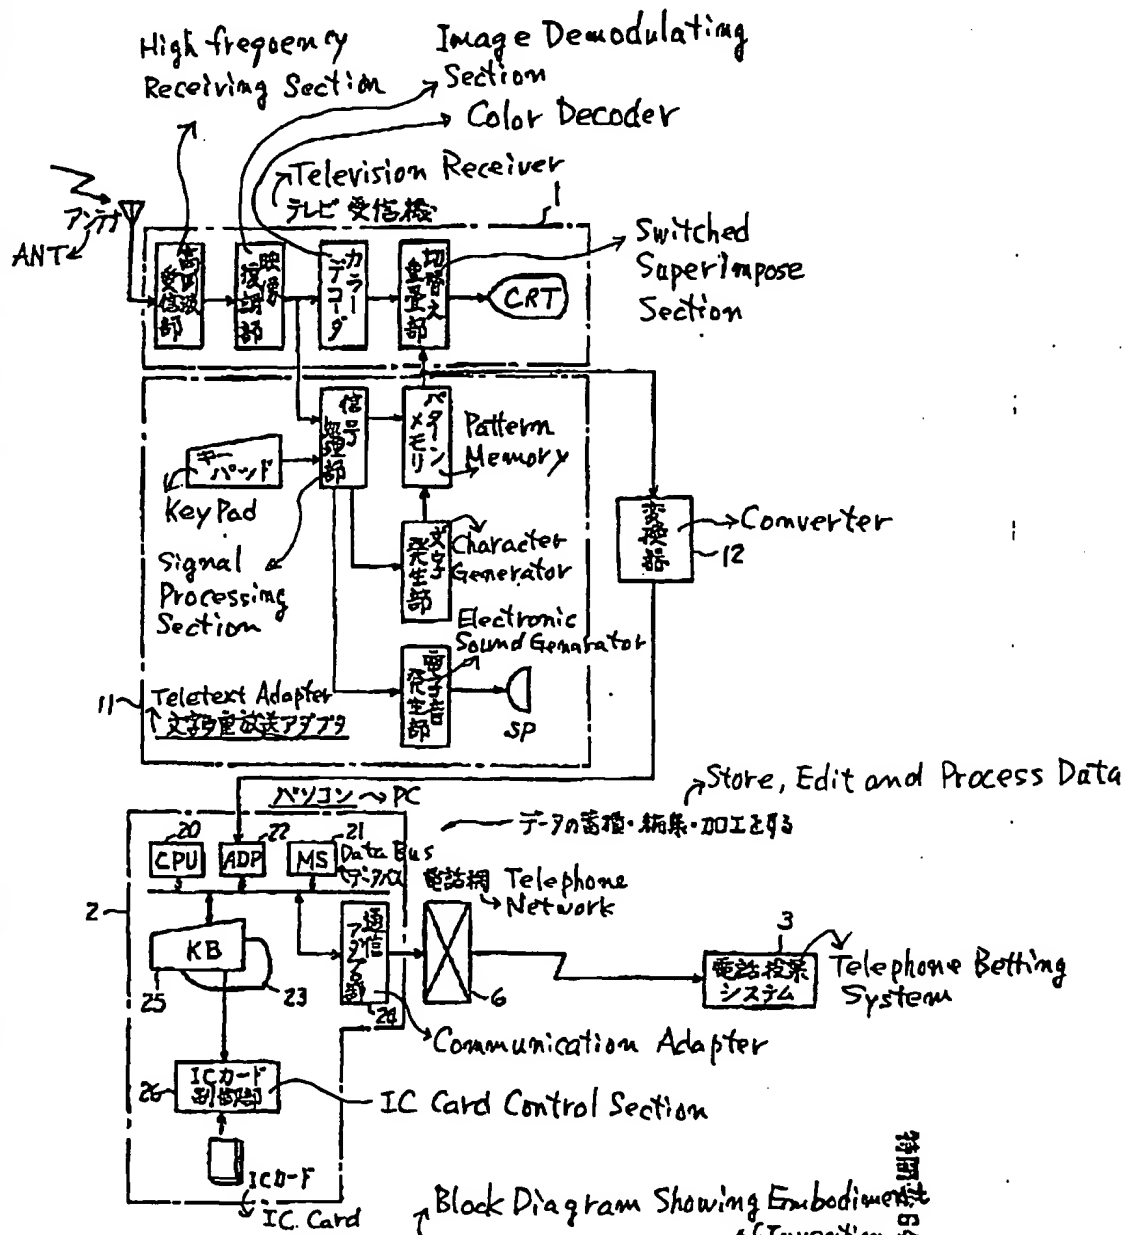 High frequency
Receiving Section
Image Demodulating
Section
Color Decoder
Television Receiver
テレビ受信機
1
アンテナ
ANT
高周波
受信部
映像
復調部
カラー
デコーダ
切替え
重畳部
CRT
Switched
Superimpose
Section
信号
処理部
パターン
メモリ
Pattern
Memory
キー
パッド
Key Pad
Signal
Processing
Section
文字
発生部
Character
Generator
変換器
Converter
12
Electronic
Sound Genarator
電子音
発生部
SP
11
Teletext Adapter
文字多重放送アダプタ
パソコン
PC
Store, Edit and Process Data
データの蓄積・編集・加工をする
20
22
21
CPU
ADP
MS
Data Bus
データバス
電話網
Telephone
Network
2
KB
25
23
通信
アダプタ部
24
6
3
電話投票
システム
Telephone Betting
System
Communication Adapter
26
ICカード
制御部
IC Card Control Section
ICカード
IC. Card
Block Diagram Showing Embodiment
of Invention
特開平